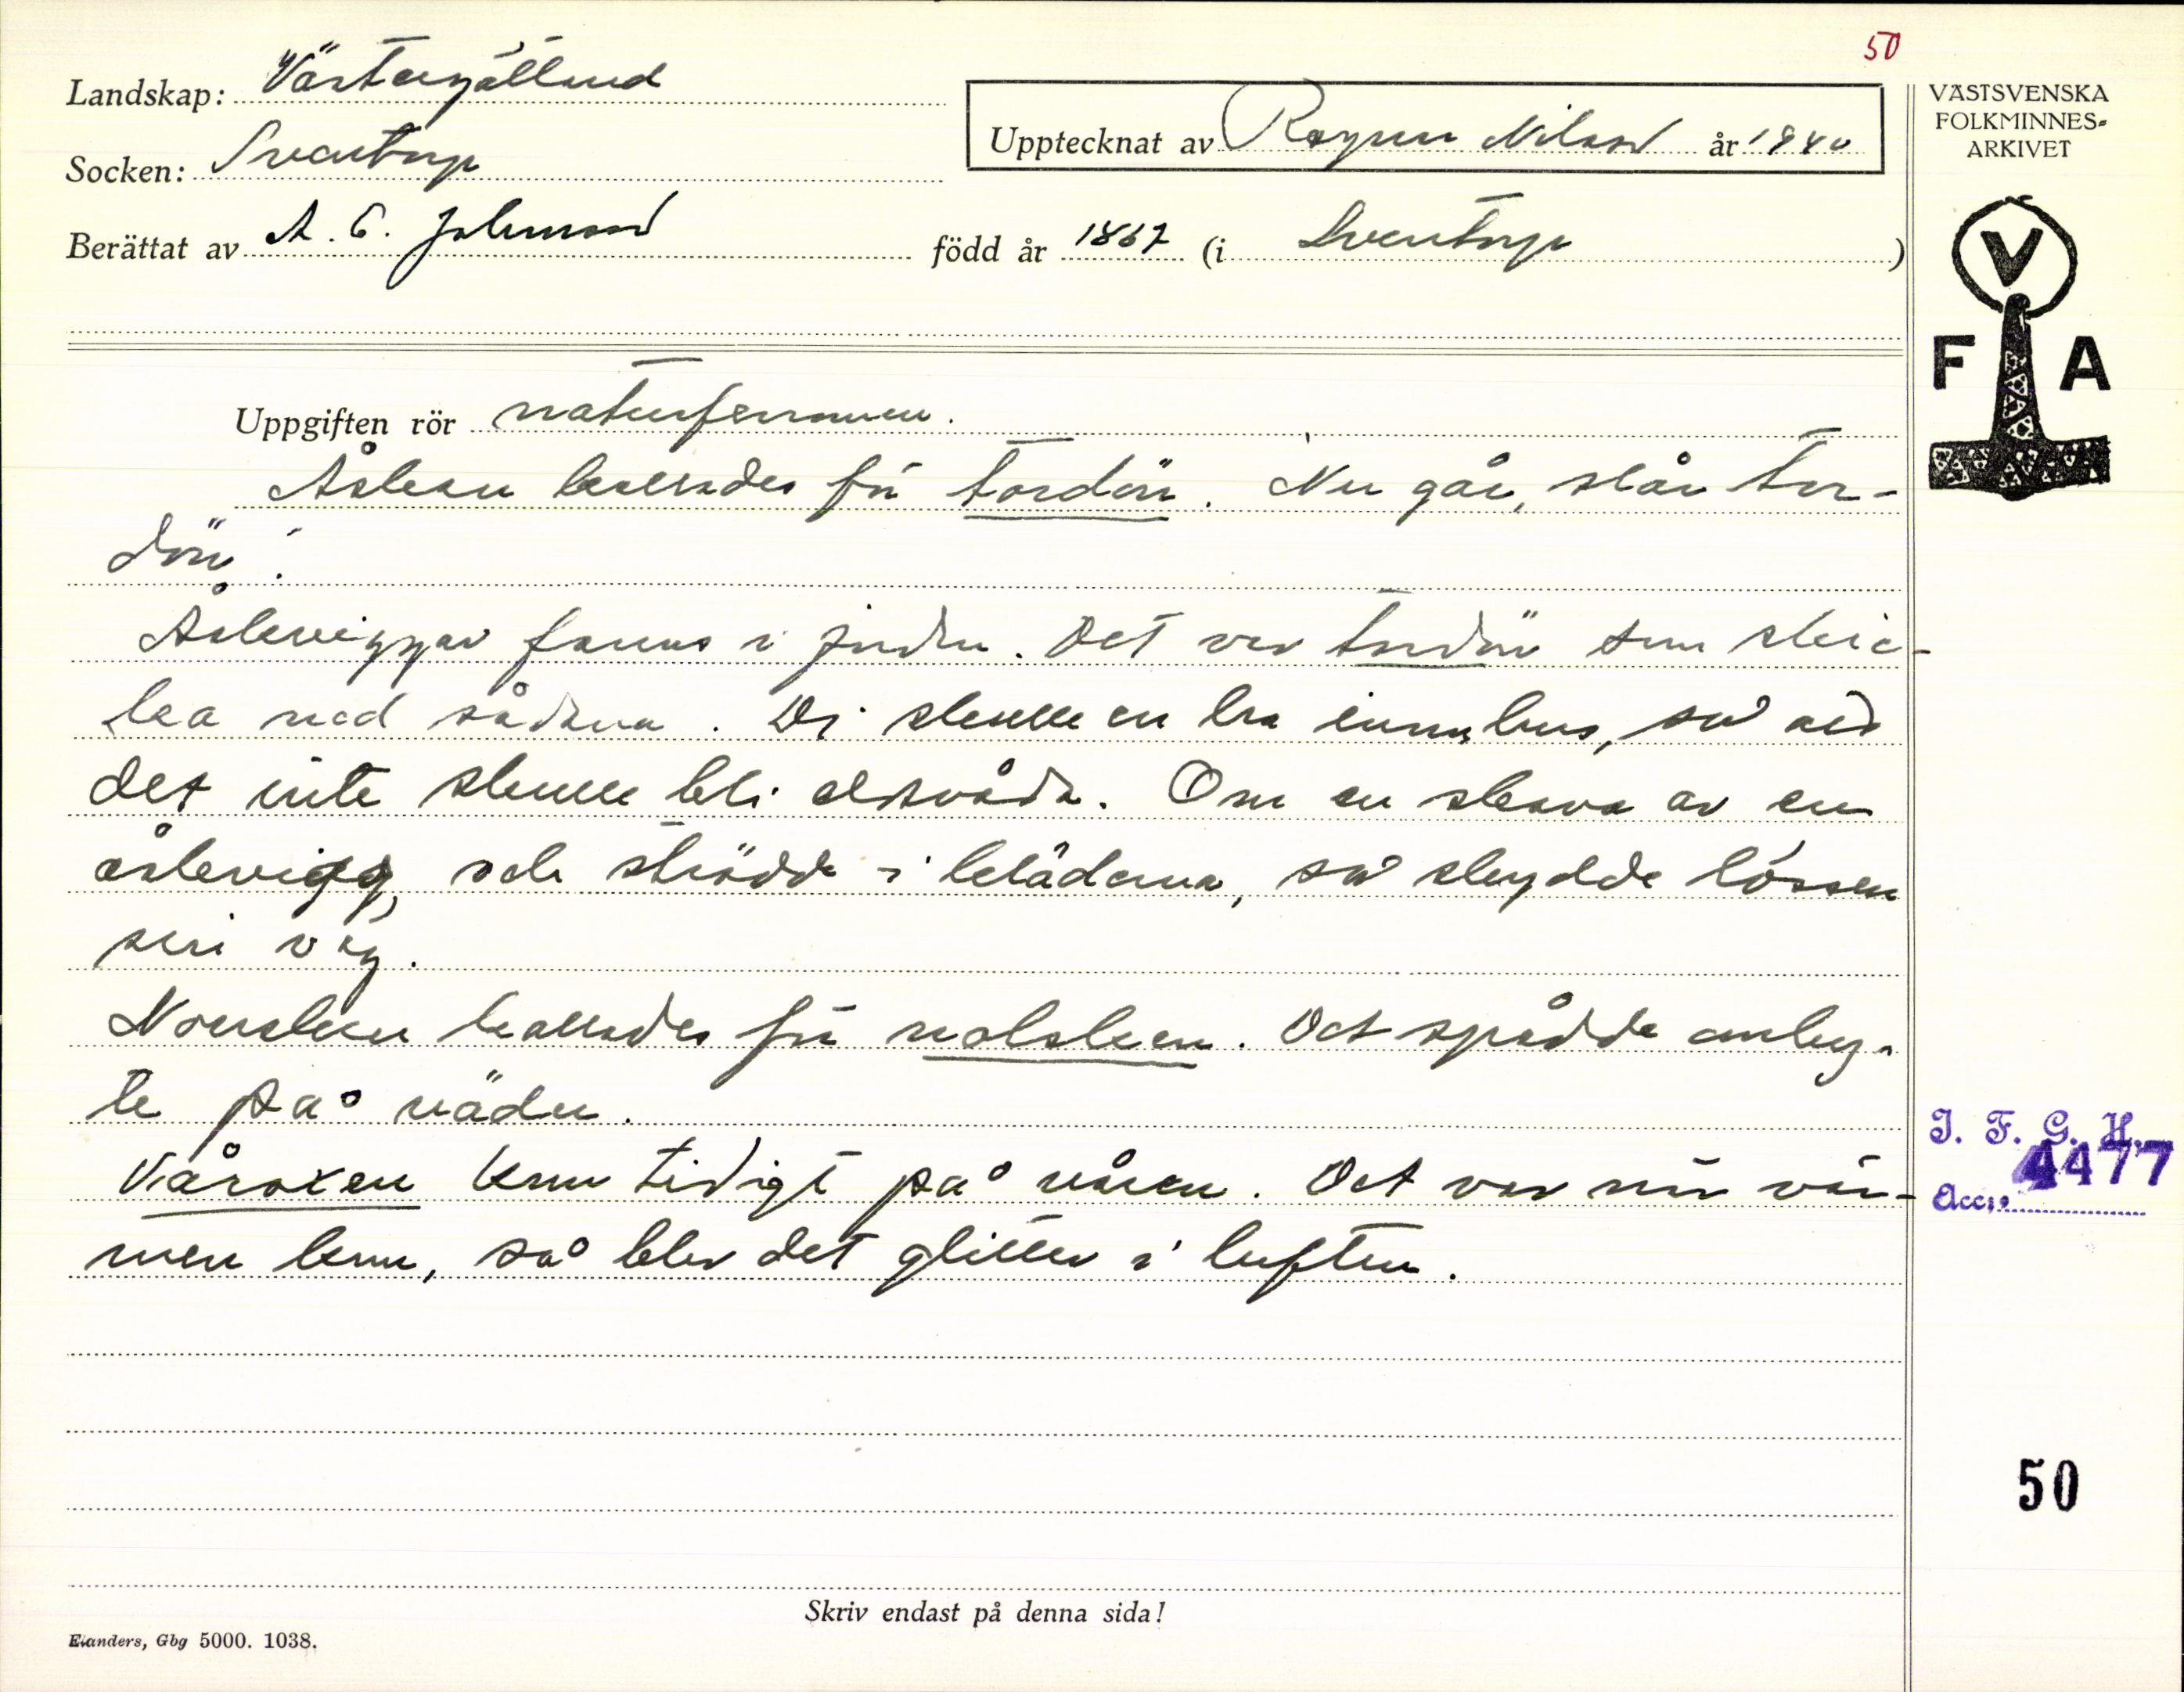 50
Landskap: Västergötland
Socken: Sventorp
Upptecknat av Ragnar Nilsson år 1940
VÄSTSVENSKA
FOLKMINNES-
ARKIVET
Berättat av A. E. Johansson född år 1867 (i Sventorp )
V
F A
Uppgiften rör naturfenomen.
Åskan kallades för tordön. Nu går, slår tor-
dön!
Åskviggar fanns i jorden. Det var tordön som skic-
ka ned sådana. Di skulle en ha inomhus, så att
det inte skulle bli eldsvåda. Om en skava av en
åskevigg, och strödde i kläderna, så skydde lössen
sin väg.
Norrsken kallades för nolsken. Det spådde omby-
te på väder.
Våroxen kom tidigt på våren. Det var när vär-
men kom, så blev det glitter i luften.
I. F. G. H.
Acc: 4477
50
Skriv endast på denna sida!
Elanders, Gbg 5000. 1038.